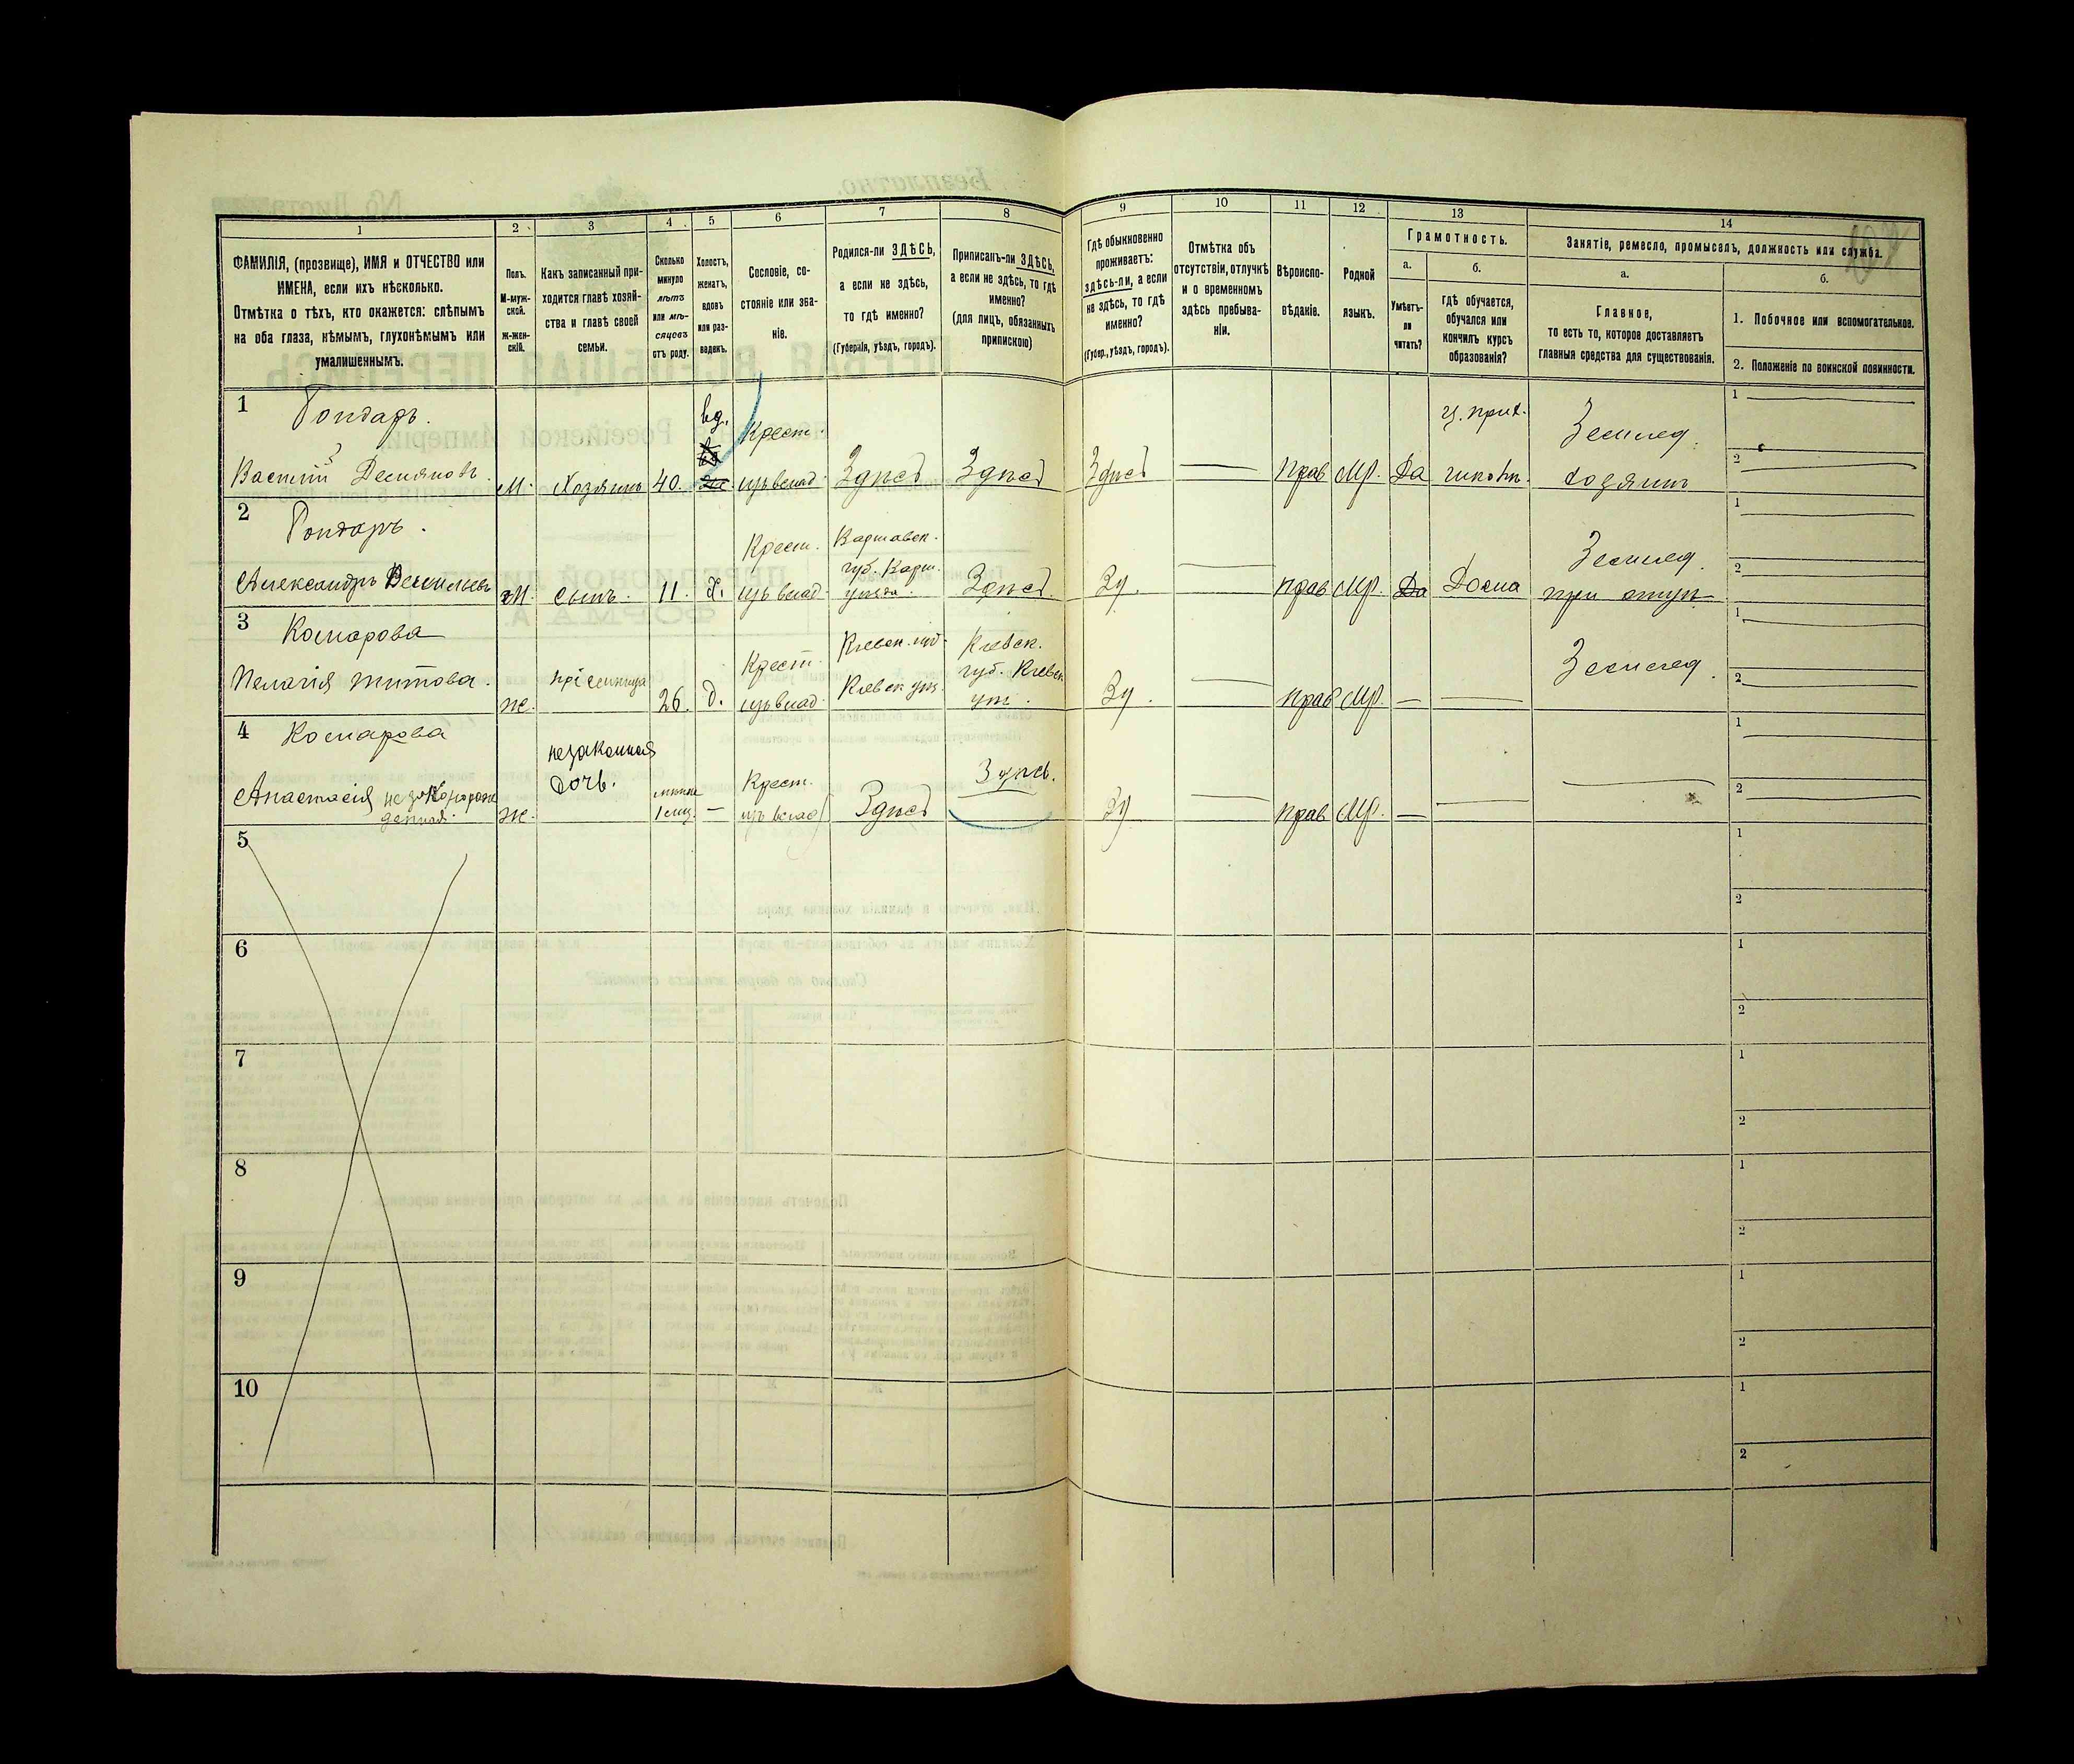 1
2
3
4
5
6
7
8
9
10
11
12
13
14
ФАМИЛІЯ, (прозвище), ИМЯ и ОТЧЕСТВО или
ИМЕНА, если ихъ нѣсколько.
Отмѣтка о тѣхъ, кто окажется: слѣпымъ
на оба глаза, нѣмымъ, глухонѣмымъ или
умалишеннымъ.
Полъ.
М-муж-
ской.
Ж-жен-
скій.
Какъ записанный при-
ходится главѣ хозяй-
ства и главѣ своей
семьи.
Сколько
минуло
лѣтъ
или мѣ-
сяцовъ
отъ роду.
Холостъ,
женатъ,
вдовъ
или раз-
веденъ.
Сословіе, со-
стояніе или зва-
ніе.
Родился-ли ЗДѢСЬ,
а если не здѣсь,
то гдѣ именно?
(Губернія, уѣздъ, городъ).
Приписанъ-ли ЗДѢСЬ,
а если не здѣсь, то гдѣ
именно?
(для лицъ, обязанныхъ
припискою)
Гдѣ обыкновенно
проживаетъ:
здѣсь-ли, а если
не здѣсь, то гдѣ
именно?
(Губер., уѣздъ, городъ).
Отмѣтка объ
отсутствіи, отлучкѣ
и о временномъ
здѣсь пребыва-
ніи.
Вѣроиспо-
вѣданіе.
Родной
языкъ.
Грамотность.
а.
Умѣетъ-
ли
читать?
б.
гдѣ обучается,
обучался или
кончилъ курсъ
образованія?
Занятіе, ремесло, промыселъ, должность или служба.
а.
Главное,
то есть то, которое доставляетъ
главныя средства для существованія.
б.
1. Побочное или вспомогательное.
2. Положеніе по воинской повинности.
1
Гондарь.
Демяновъ
М.
Хозяинъ
40.
вд.
Крест.
изъ влад.
Здѣсь
Здѣсь
Здѣсь
прав
Мр.
Да
ц. прих.
школѣ.
Землед.
хозяинъ
1
2
2
Гондарь.
Александръ
М.
сынъ.
11.
Х.
Крест.
изъ влад.
Варшавск.
губ. Варш.
уѣзда.
Здѣсь.
Зд.
прав
Мр.
Да
Дома
Землед.
при отцѣ
1
2
3
Комарова
Пелагія Титова.
Ж.
26.
д.
Крест.
изъ влад.
Кіевск. губ.
Кіевск. уѣз.
Кіевск.
губ. Кіевск
уѣз.
Зд.
прав
Мр.
Землед.
1
2
4
Комарова
Анастасія
Ж.
незаконная
дочь.
1 мѣц.
Крест.
изъ влад
Здѣсь
Здѣсь.
Зд
прав
Мр.
1
2
5
1
2
6
1
2
7
1
2
8
1
2
9
1
2
10
1
2